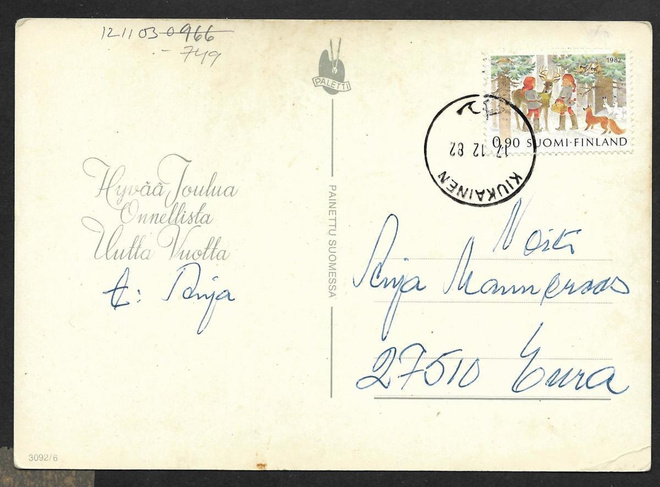 12 11 03 0966
.- 749
PALETTI
1982
0,90 SUOMI-FINLAND
17. 12. 82
KIUKAINEN
Hyvää Joulua
Onnellista
Uutta Vuotta
t: Pirjo
PAINETTU SUOMESSA
27510 Eura
3092/6